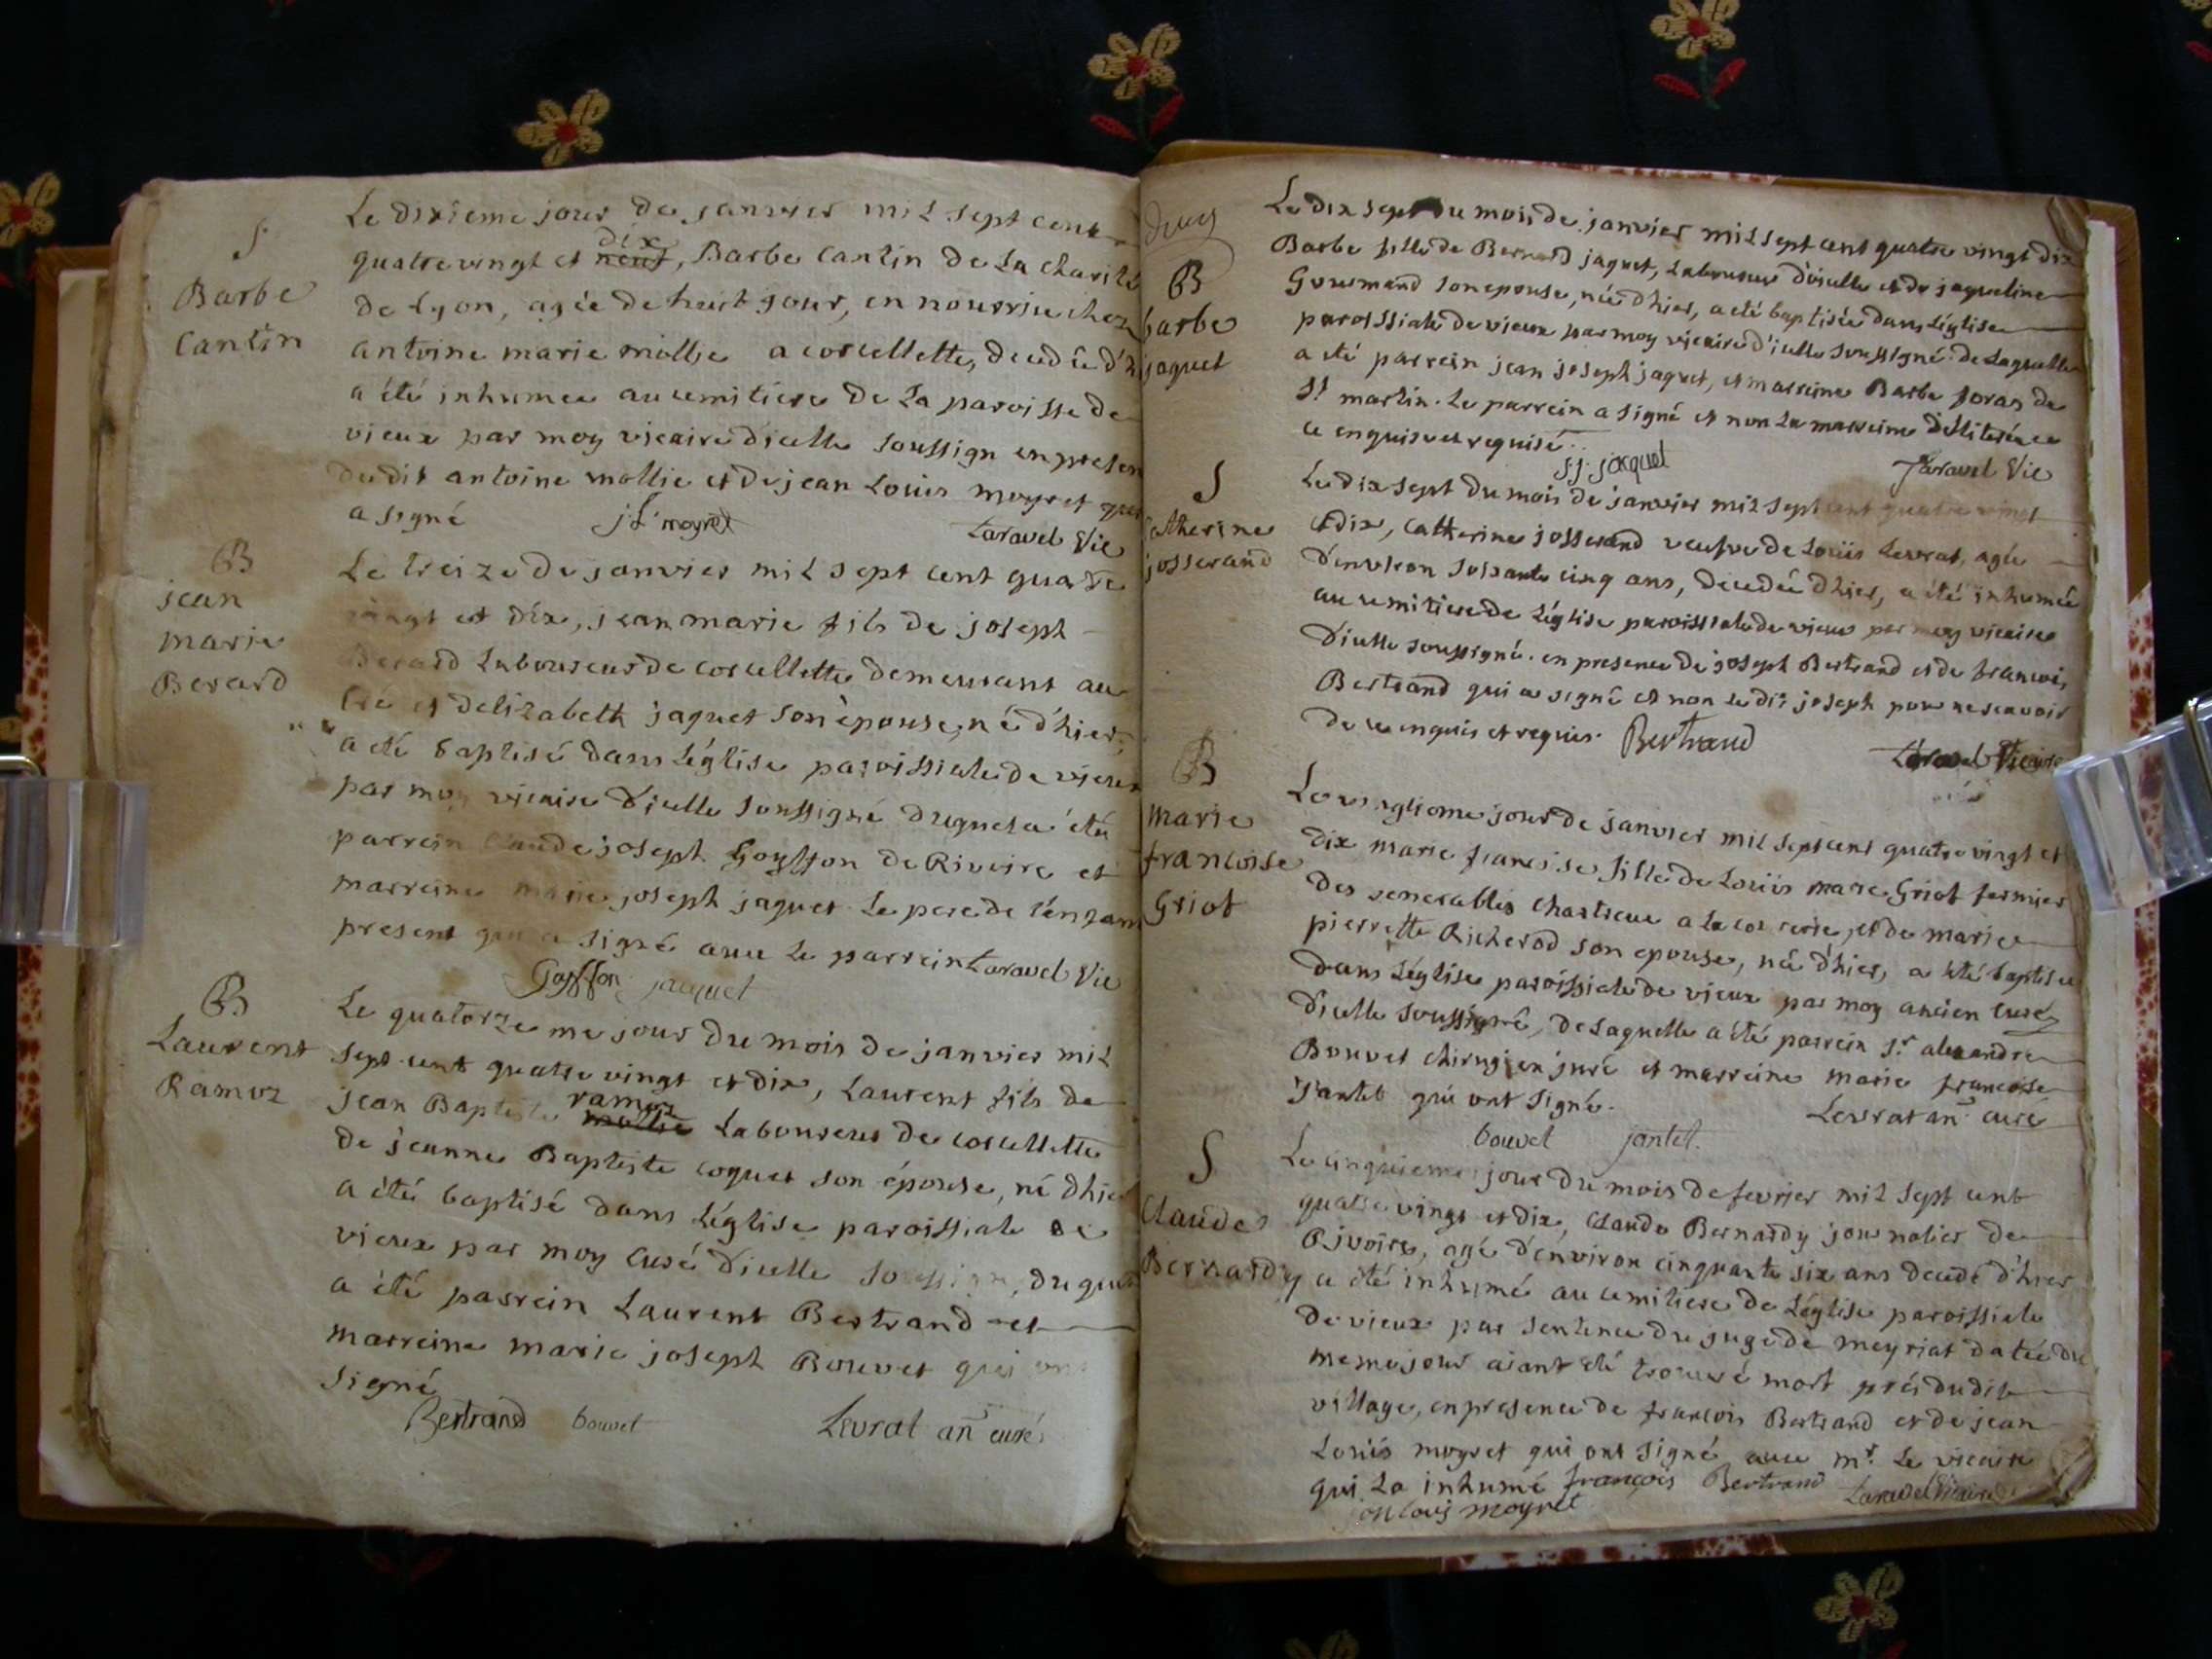 S
Barbe
Cantin
Le dixieme jour de janvier mil sept cent
dix
quatre vingt et neuf, Barbe Cantin de La charité
de Lyon, agée de huit jour, en nourrice chez
antoine marie mollie a corcellette, decedée d'h
a été inhumee au cemitiere de La paroisse de
vieux par moy vicaire d'icelle soussign en presen
dudit antoine mollie et de jean Louis moyret qui
a signé j L moyret Laravel Vic
B
jean
marie
Berard
Le treize de janvier mil sept cent quatre
vingt et dix, jean marie fils de joseph
Berard Laboureur de corcellette demeurant au
et d'elizabeth jaquet son épouse, né d'hier,
a eté baptisé dans L'église paroissiale de vieux
par moy vicaire d'icelle soussigné duquel a été
parrein Claude joseph Goyffon de Rivoire et
marreine marie joseph jaquet Le pere de l'enfan
present qui a signé avec Le parrein Laravel Vic
Goyffon jacquet
B
Laurent
Ramoz
Le quatorzeme jour du mois de janvier mil
sept cent quatre vingt et dix, Laurent fils de
ramoz
jean Baptiste mollie Laboureur de corcellette
de jeanne Baptiste coquet son épouse, né d'hier
a été baptisé dans L'église paroissiale de
vieux par moy curé d'icelle soussigné, duquel
a été parrein Laurent Bertrand et
marreine marie joseph Bouvet qui ont
signé
Bertrand bouvet Levrat an curé
deux
B
barbe
jaquet
Le dix sept du mois de janvier mil sept cent quatre vingt dix
Barbe fille de Bernard jaquet, Laboureur d'icelle et de jaqueline
Gourmand son epouse, née d'hier, a eté baptisée dans L'église
paroissiale de vieux par moy vicaire d'icelle soussigné de Laquelle
a eté parrein jean joseph jaquet, et marreine Barbe foray de
St martin. Le parrein a signé et non La marreine d'illiterée
ce enquise et requise.
j.j. jacquet Laravel Vic
S
Catherine
josserand
Le dix sept du mois de janvier mil sept cent quatre vingt
et dix, Catherine josserand veufve de Loüis Levrat, agée
d'environ soisante cinq ans, decedée d'hier, a été inhumée
au cemitiere de L'église paroissiale de vieux par moy vicaire
d'icelle soussigné. en presence de joseph Bertrand et de francois
Bertrand qui a signé et non Le dit joseph pour ne scavoir
de ce enquis et requis. Bertrand Laravel Vicaire
B
marie
francoise
Griot
Le vingtieme jour de janvier mil sept cent quatre vingt et
dix marie francoise fille de Loüis marie Griot fermier
des venerables Chartreux a La correrie, et de marie
pierrette Richerod son epouse, née d'hier, a été baptisée
dans L'église paroissiale de vieux par moy ancien curé
d'icelle soussigné, de Laquelle a été parrein Sr. alexandre
Bouvet chirugien juré et marreine marie francoise
jantet qui ont signé. Levrat an curé
bouvet jantet.
S
Claude
Bernardy
Le cinquieme jour du mois de fevrier mil sept cent
quatre vingt et dix, Claude Bernardy journalier de
Rivoire, agé d'environ cinquante six ans decedé d'hier
a été inhumé au cemitiere de L'église paroissiale
de vieux par sentence du juge de meyriat datée du
meme jour aiant été trouvé mort prés dudit
village, en presence de francois Bertrand et de jean
Louis moyret qui ont signé avec mr. Le vicaire
qui La inhumé françois Bertrand Laravel Vicaire
jan louis moyret